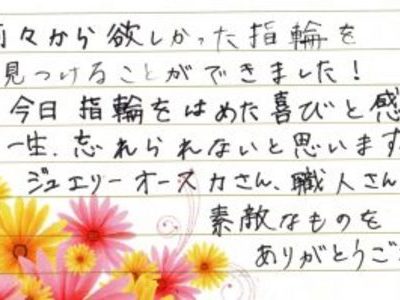 々から欲しかった指輪を
見つけることができました!
今日指輪をはめた喜びと感
一生、忘れられないと思います
ジュエリーオースカさん、職人さん
素敵なものを
ありがとうご